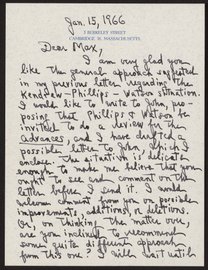 Jan. 15, 1966
3 BERKELEY STREET
CAMBRIDGE 38, MASSACHUSETTS
Dear Max,
I am very glad you
like the general approach suggested
in my previous letter regarding the
Kendrew-Phillips-Watson situation.
I would like to write to John, pro-
posing that Phillips & Watson be
invited to do a review for the
Advances, and I have drafted a
possible letter to John, which I
enclose. The situation is delicate
enough to make me believe that you
ought to see and comment on the
letter before I send it. I would
welcome comment from you on possible
improvements, additions, or deletions.
Or, on thinking the matter over,
are you inclined to recommend
some quite different approach
from this one? I will wait until